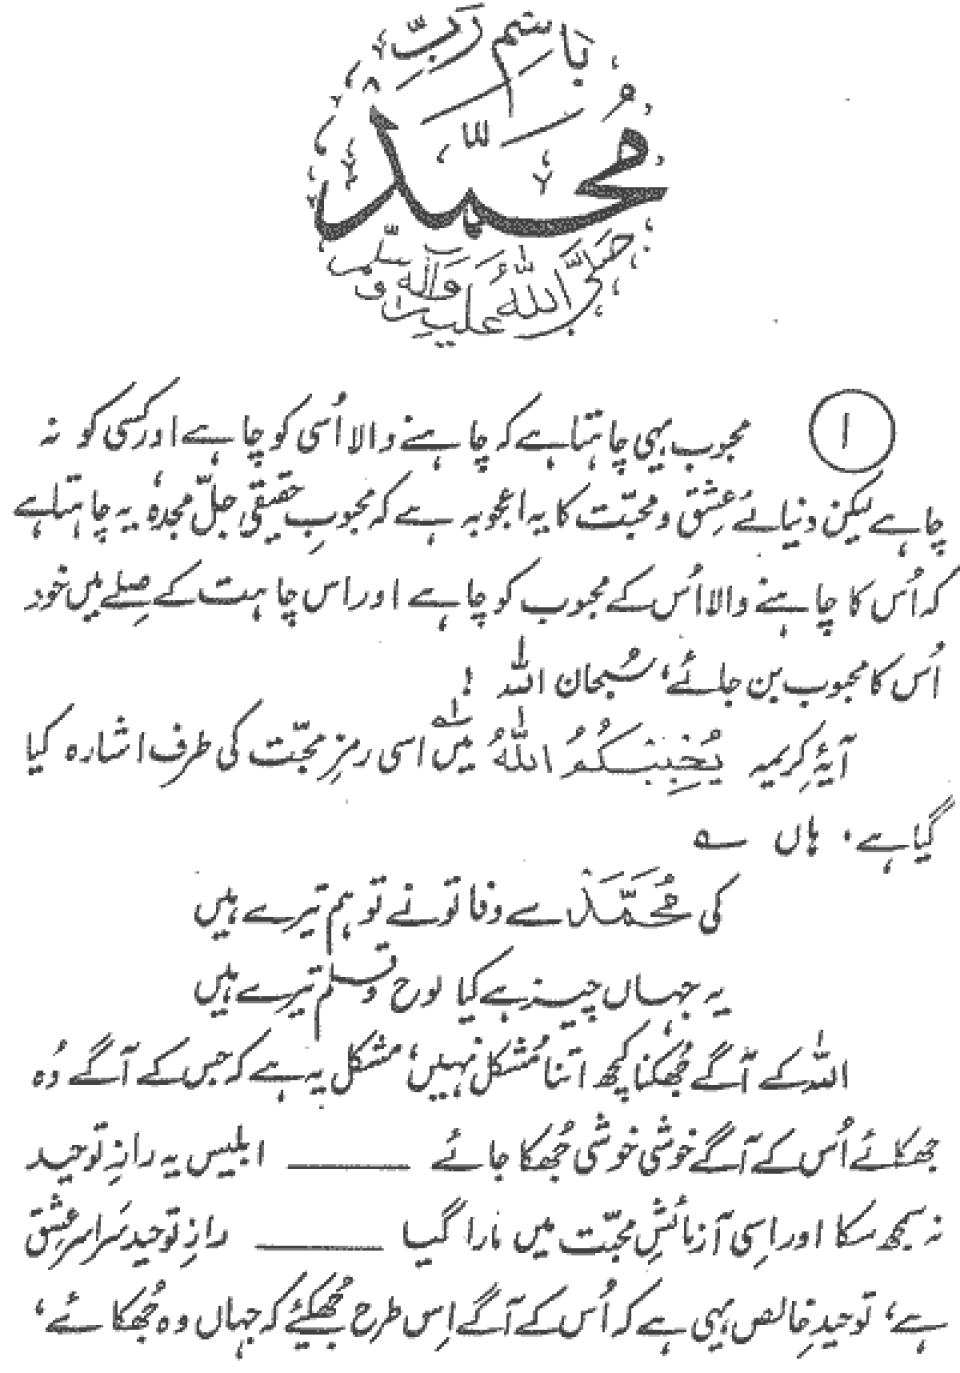 بِاسْمِ رَبِّ
مُحَمَّد
صَلَّی اللّٰهُ عَلَیْہِ وَآلِہٖ وَسَلَّم
۱
محبوب یہی چاہتا ہے کہ چاہنے والا اُسی کو چاہے اور کسی کو نہ
چاہے لیکن دنیائے عِشق و محبّت کا یہ اعجوبہ ہے کہ محبوبِ حقیقی جلّ مجدہٗ یہ چاہتا ہے
کہ اُس کا چاہنے والا اُس کے محبوب کو چاہے اور اس چاہت کے صِلے میں خود
اُس کا محبوب بن جائے، سُبحان اللہ !
آیۂ کریمہ یُحْبِبْکُمُ اللّٰهُ میں ؎۱ اسی رمزِ محبّت کی طرف اشارہ کیا
گیا ہے، ہاں ؎
کی مُحَمَّد سے وفا تو نے تو ہم تیرے ہیں
یہ جہاں چیز ہے کیا لوح و قلم تیرے ہیں
اللہ کے آگے جُھکنا کچھ اتنا مُشکل نہیں، مشکل یہ ہے کہ جس کے آگے وُہ
جھکائے اُس کے آگے خوشی خوشی جُھکا جائے ــــــــ ابلیس یہ رازِ توحید
نہ سمجھ سکا اور اِسی آزمائشِ محبّت میں مارا گیا ــــــــ رازِ توحید سَراسر عِشق
ہے، توحیدِ خالص یہی ہے کہ اُس کے آگے اِس طرح جُھکیئے کہ جہاں وہ جُھکائے،